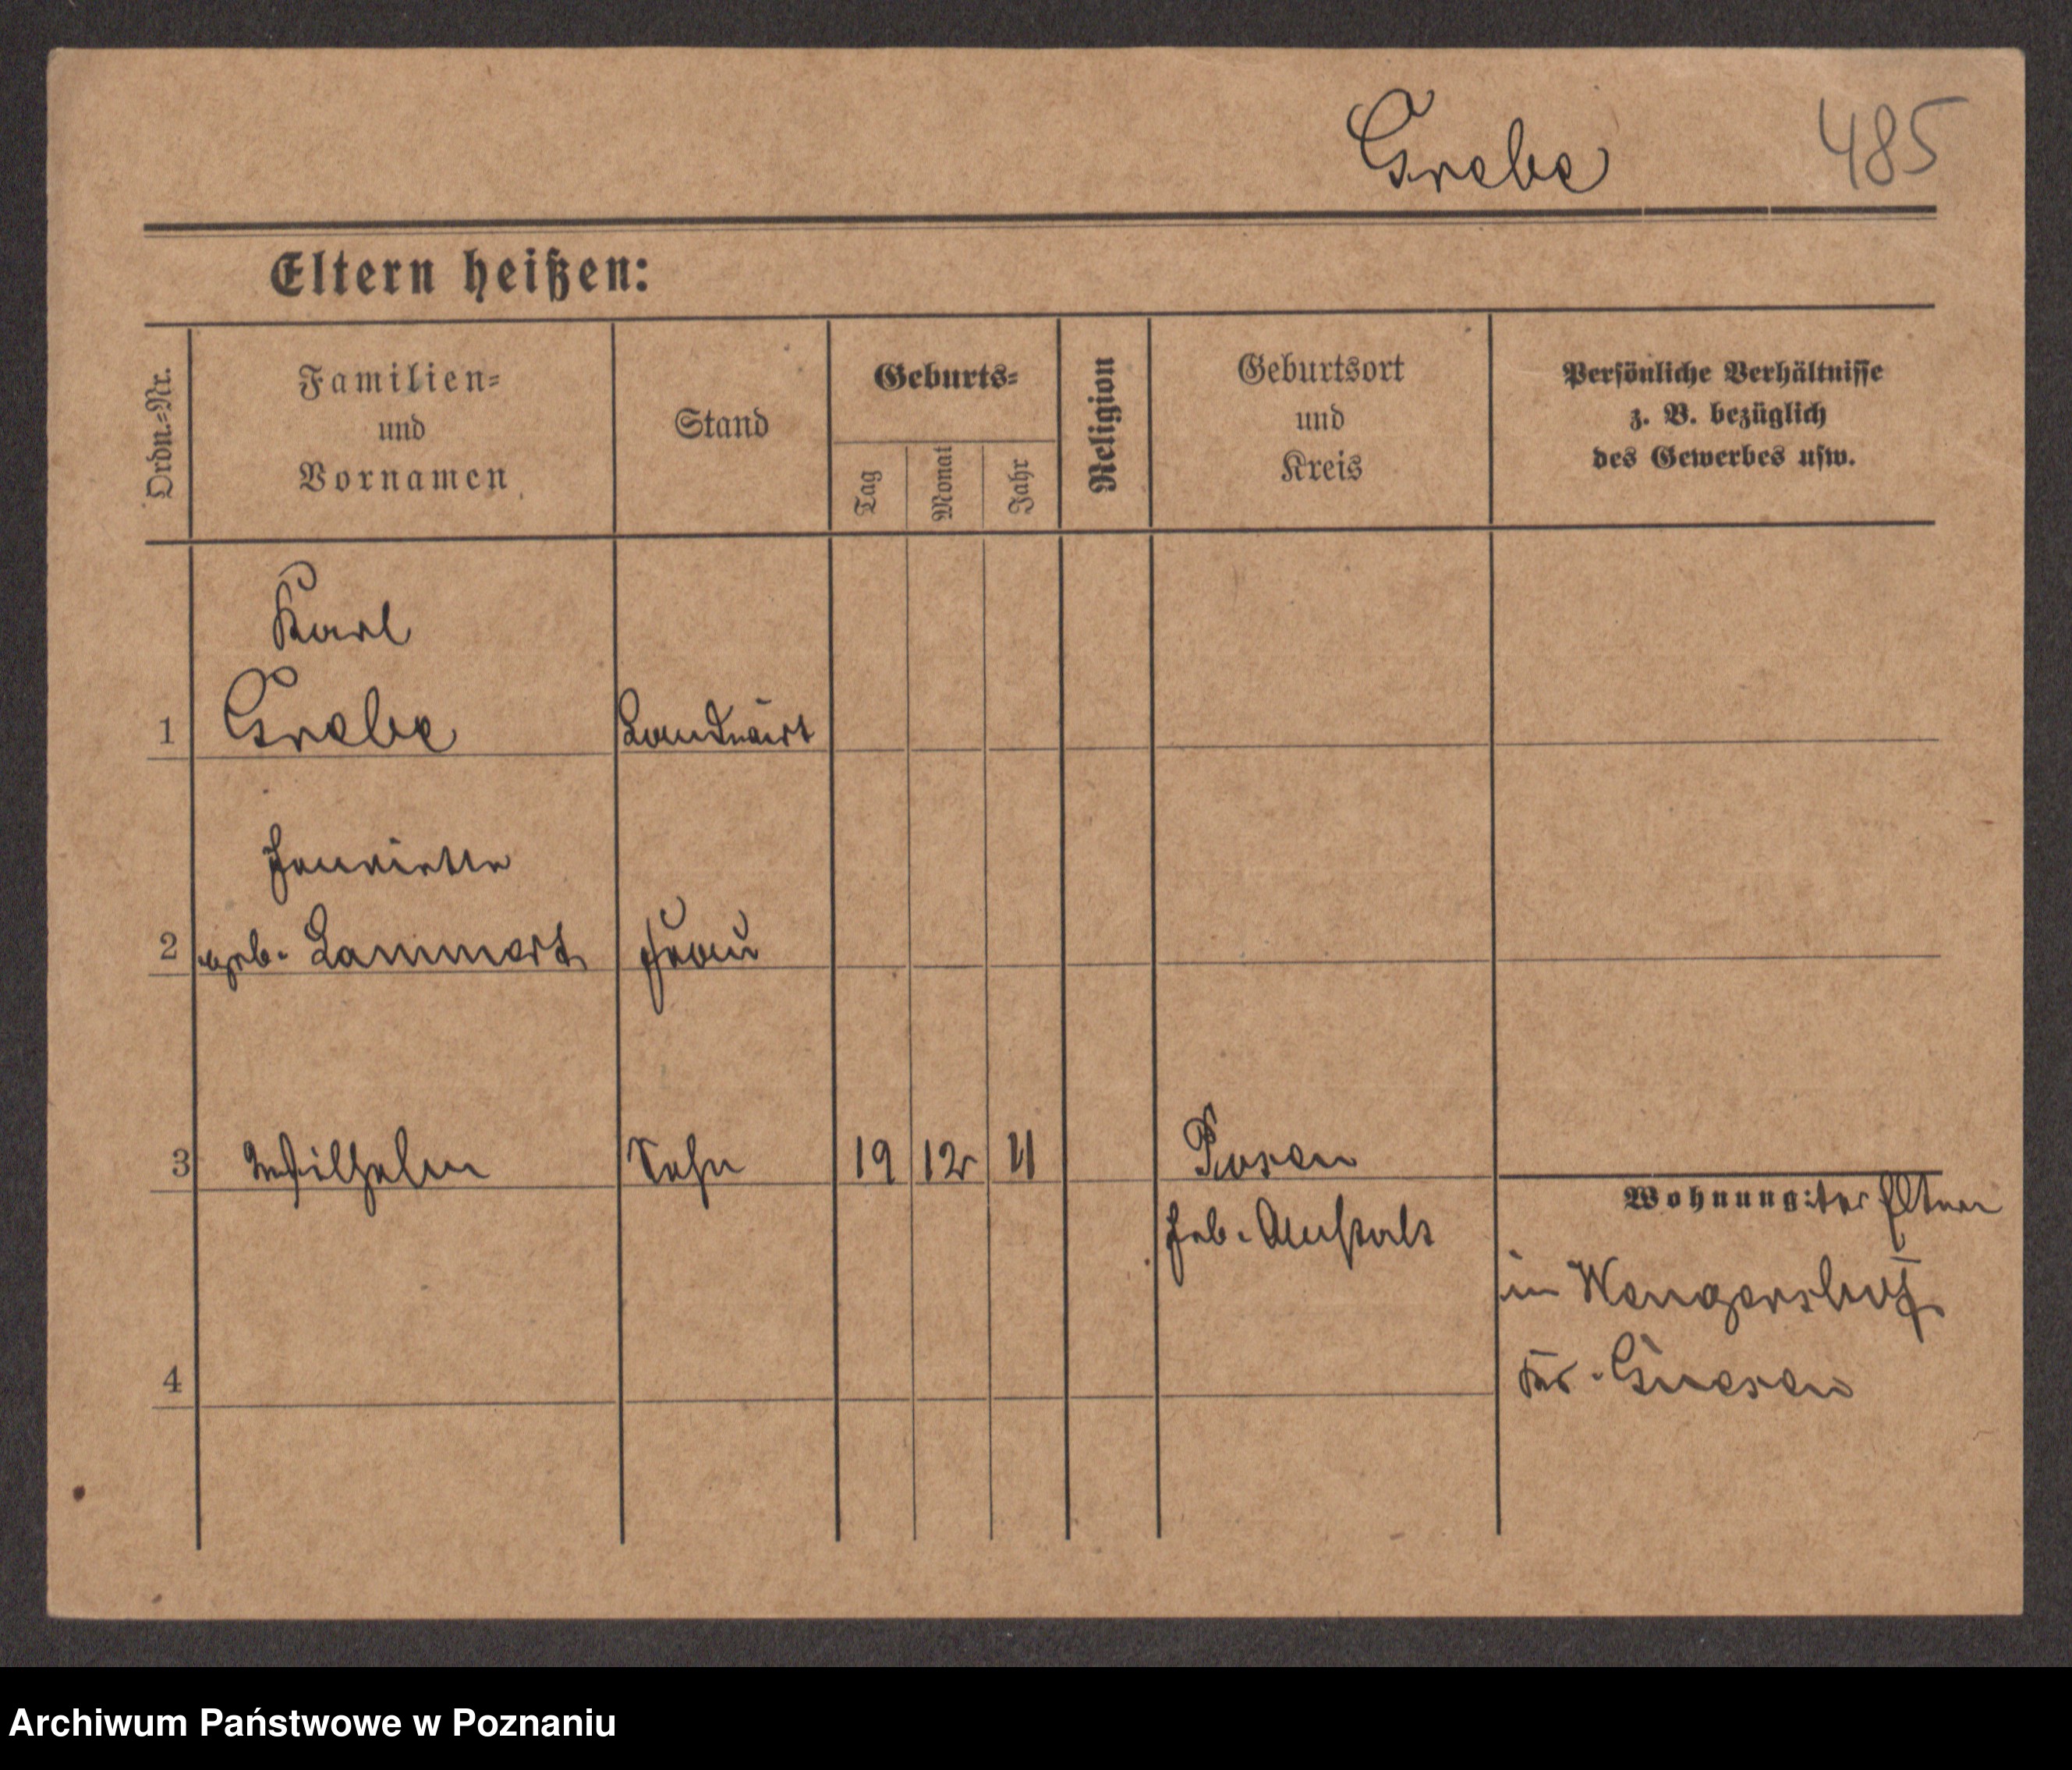 Grebe 485
Eltern heißen:
Ordn.=Nr.
Familien=
und
Vornamen
Stand
Geburts=
Tag
Monat
Jahr
Religion
Geburtsort
und
Kreis
Persönliche Verhältnisse
z. B. bezüglich
des Gewerbes usw.
Karl
1 Grebe Landwirt
Henriette
2 geb. Lammert Frau
3 Wilhelm Sohn 19 12 11 Posen
Wohnung: der Eltern
Heb. Anstalt
in Wengershof
Kr. Gnesen
4
Archiwum Państwowe w Poznaniu